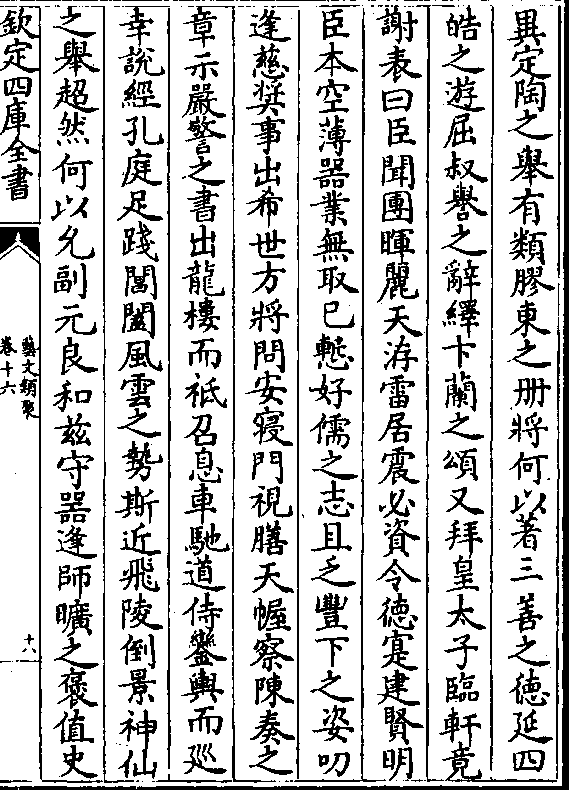 異定陶之舉有類膠東之册將何以著三善之徳延四
皓之游屈叔譽之辭繹卞蘭之頌又拜皇太子臨軒竟
謝表曰臣聞團暉麗天洊雷居震必資令徳寔建賢明
臣本空薄器業無取已慙好儒之志且乏豐下之姿叨
逢慈奬事出希世方將問安寢門視膳天幄察陳奏之
章示嚴警之書出龍樓而祗召息車馳道侍鑾輿而廵
幸説經孔庭足踐閶闔風雲之勢斯近飛陵倒景神仙
之舉超然何以允副元良和兹守器逢師曠之褒值史
欽定四庫全書
藝文類聚
卷十六
十八